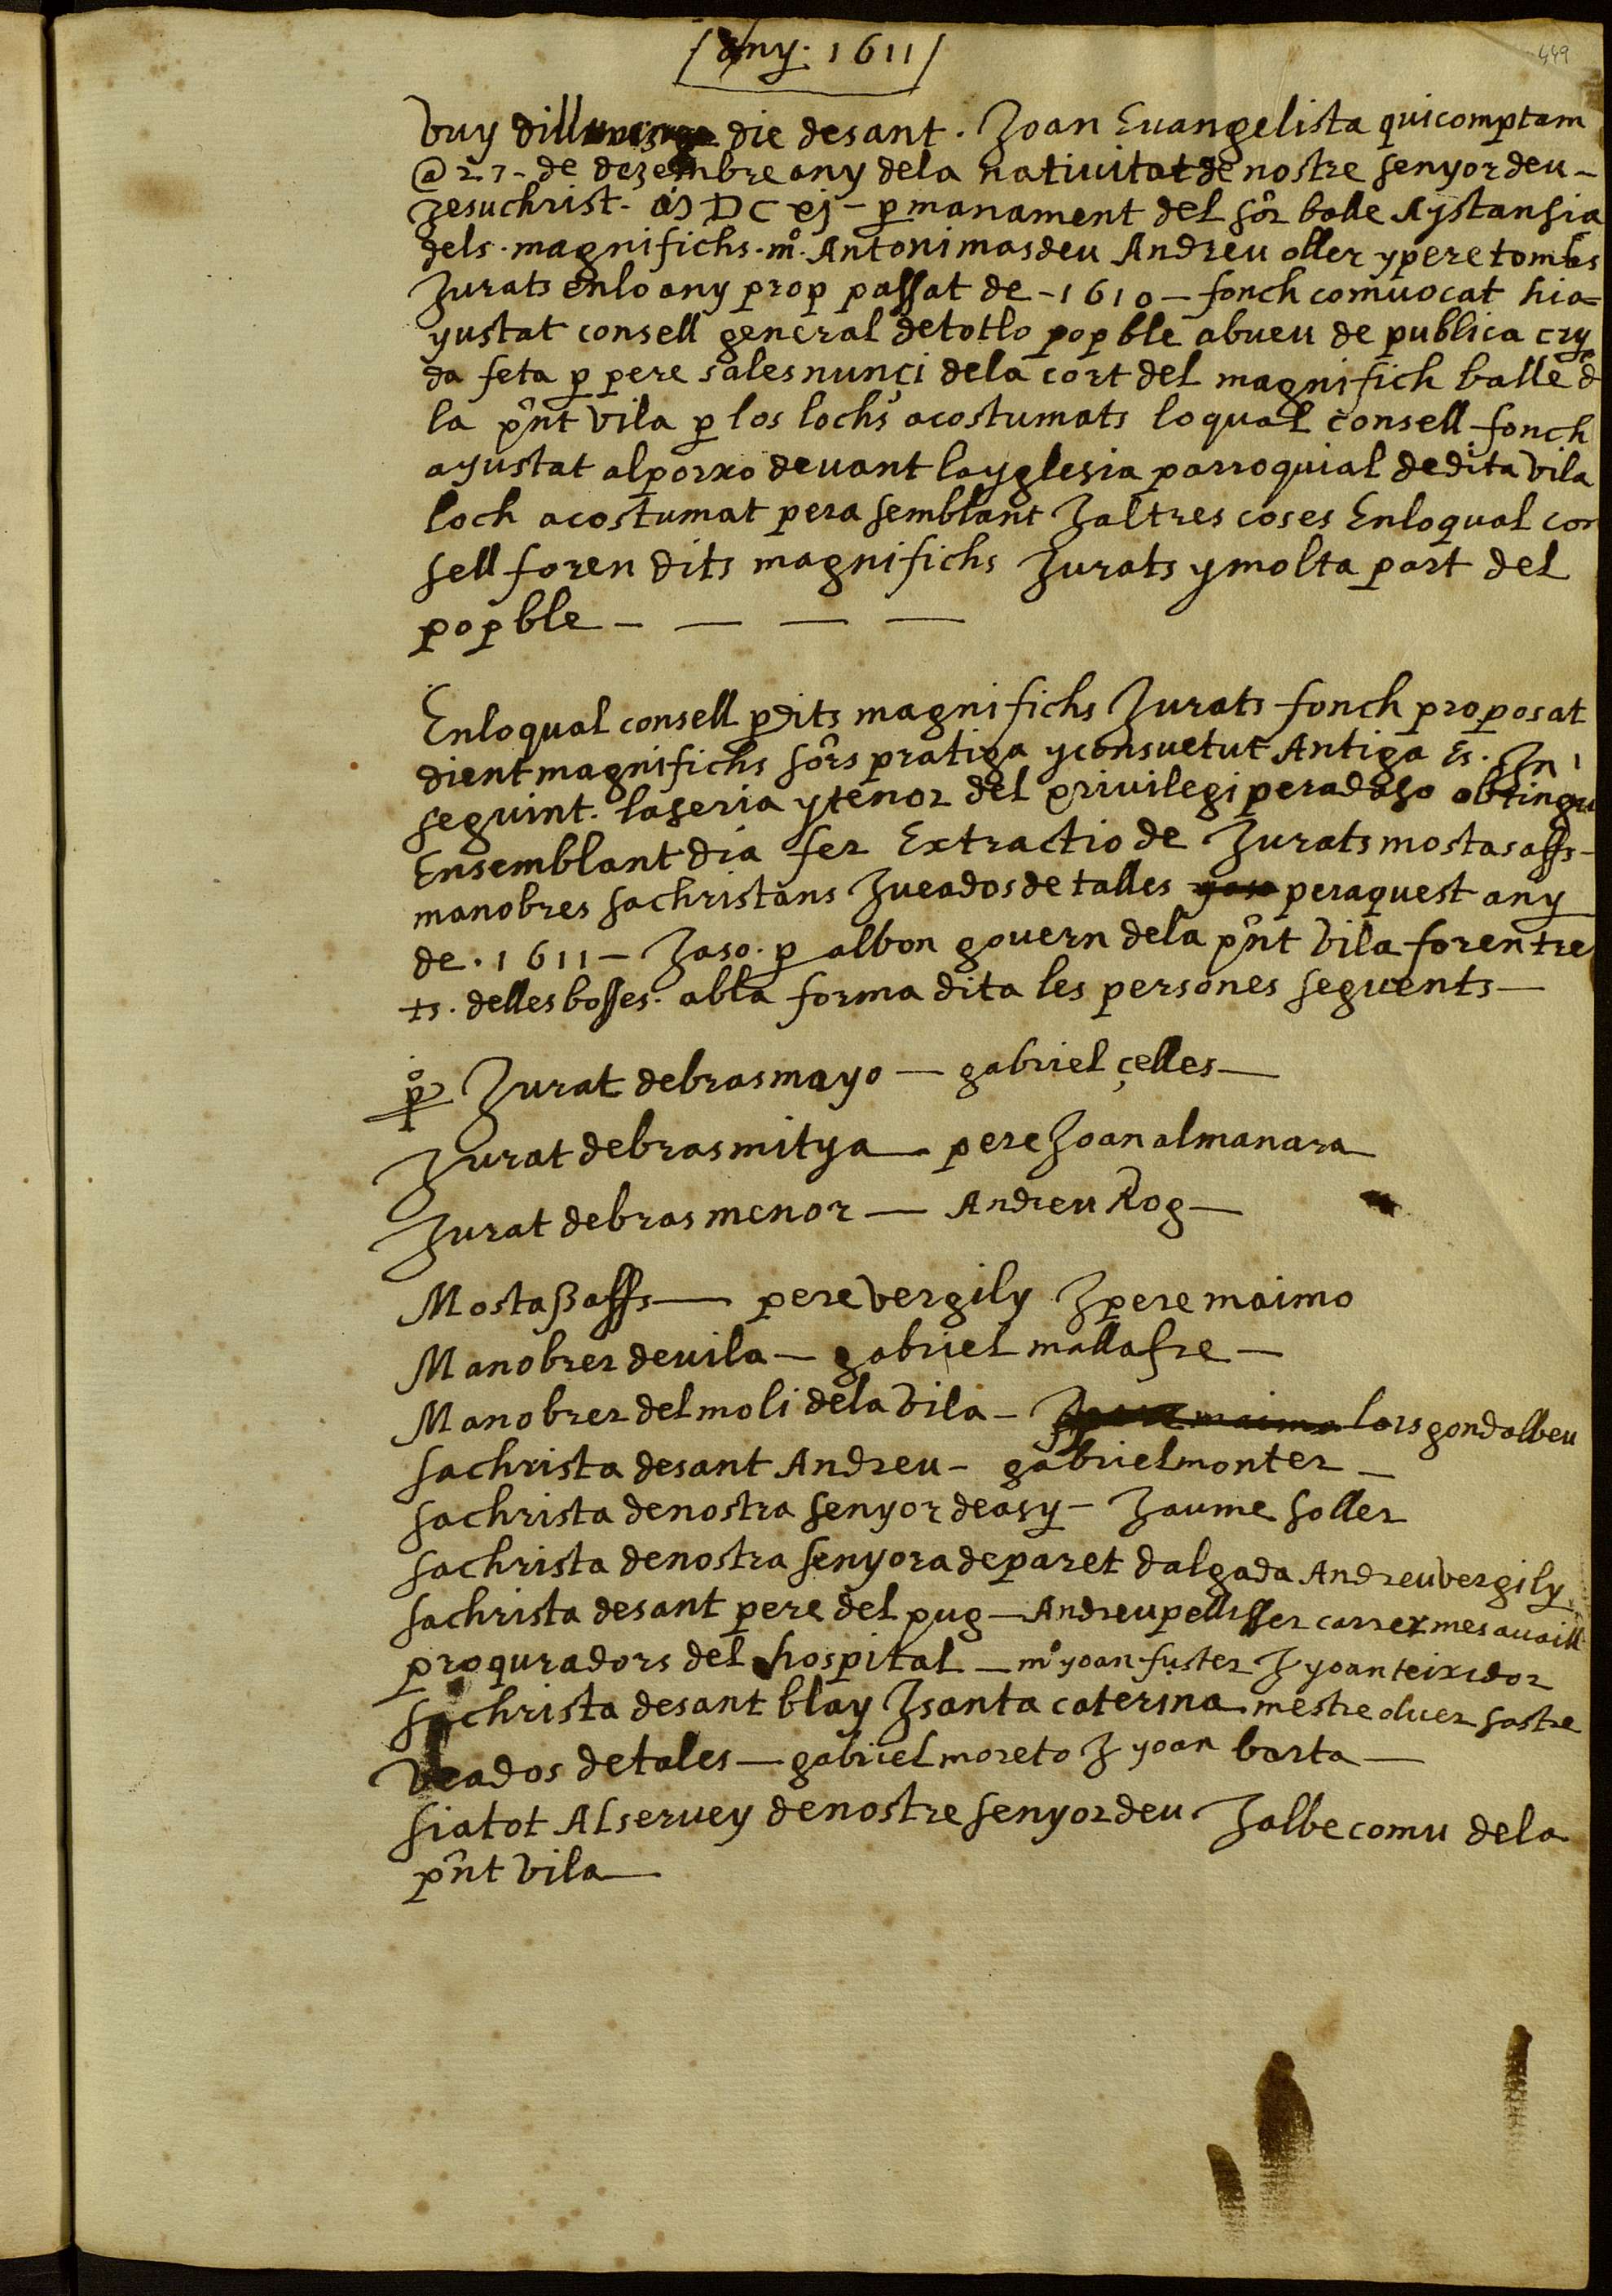 /any. 1611/
449
Vuy dilluns die desant. Joan Evangelista quicomptam
@ 27 - de dezembre any dela nativitat de nostre senyor deu -
Jesuchrist. MDCxj - p manament del sor balle Aystansia
dels. magnifichs. mo. Antoni masdeu Andreu oller y pere tomas
Jurats enlo any prop passat de - 1610 - fonch comuocat hia=
yustat consell general detotlo pop ble abueu de publica cry
da feta p pere sales nunci dela cort del magnifich balle d
la pnt vila p los lochs acostumats loqual consell fonch
ayustat alporxo devant layglesia parroquial dedita vila
loch acostumat pera semblant Jaltres coses Enloqual con
sell foren dits magnifichs Jurats ymolta part del
pop ble - — — —
Enloqual consell pdits magnifichs Jurats fonch proposat
dient magnifichs sors pratiga yconsuetut Antiga Es. In
seguint. laseria ytenor del privilegi peradaso obtingu
Ensemblant dia fer Extractio de Jurats mostasaffs -
manobres sachristans Jueados de talles peraquest any
de. 1611 - Jaso. p albon govern dela pnt vila foren tre
ts. delles bosses. abla forma dita les persones seguents —
po Jurat debrasmayo — gabriel çelles —
Jurat debrasmitya — pere Joan almanara
Jurat debras menor — Andreu Rog —
Mostaßaffs — pere vergily Jpere maimo
Manobrer devila — gabriel mallafre —
Manobrer delmoli dela vila - lois gondalbeu
sachrista desant Andreu - gabriel monter —
sachrista denostra senyor deasy - Jaume soller
sachrista denostra senyora deparet dalgada Andreu vergily
sachrista desant pere del pug — Andreu pellisser carrer mes availl
proquradors del hospital — mo yoan fuster J yoan teixidor
sachrista desant blay Jsanta caterina mestre oluer sastre
Veados detales — gabriel moreto J yoan barta —
siatot Alservey denostre senyor deu Jalbe comu dela
pnt vila —